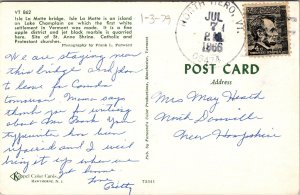 VT 862
Isle La Motte bridge. Isle La Motte is an island
on Lake Champlain on which the first white
settlement in Vermont was made. It is a fine
apple district and jet black marble is quarried
here. Site of St. Anne Shrine. Catholic and
Protestant churches.
Photography by Frank L. Forward
We are staying near
this bridge and plan
to leave for Canada
tomorrow. Mama says
thank you for writing
about Ann. Thank you
typewriter has been
repaired and I will
bring it up when we
get home
Love,
Betty
Natural Color Cards
HAWTHORNE, N. J.
73343
1-3-79
NORTH HERO, VT.
JUL
7
1966
POST CARD
Address
Mrs May Heath
North Danville
New Hampshire